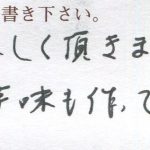 書き下さい。
しく頂きま
味も作って